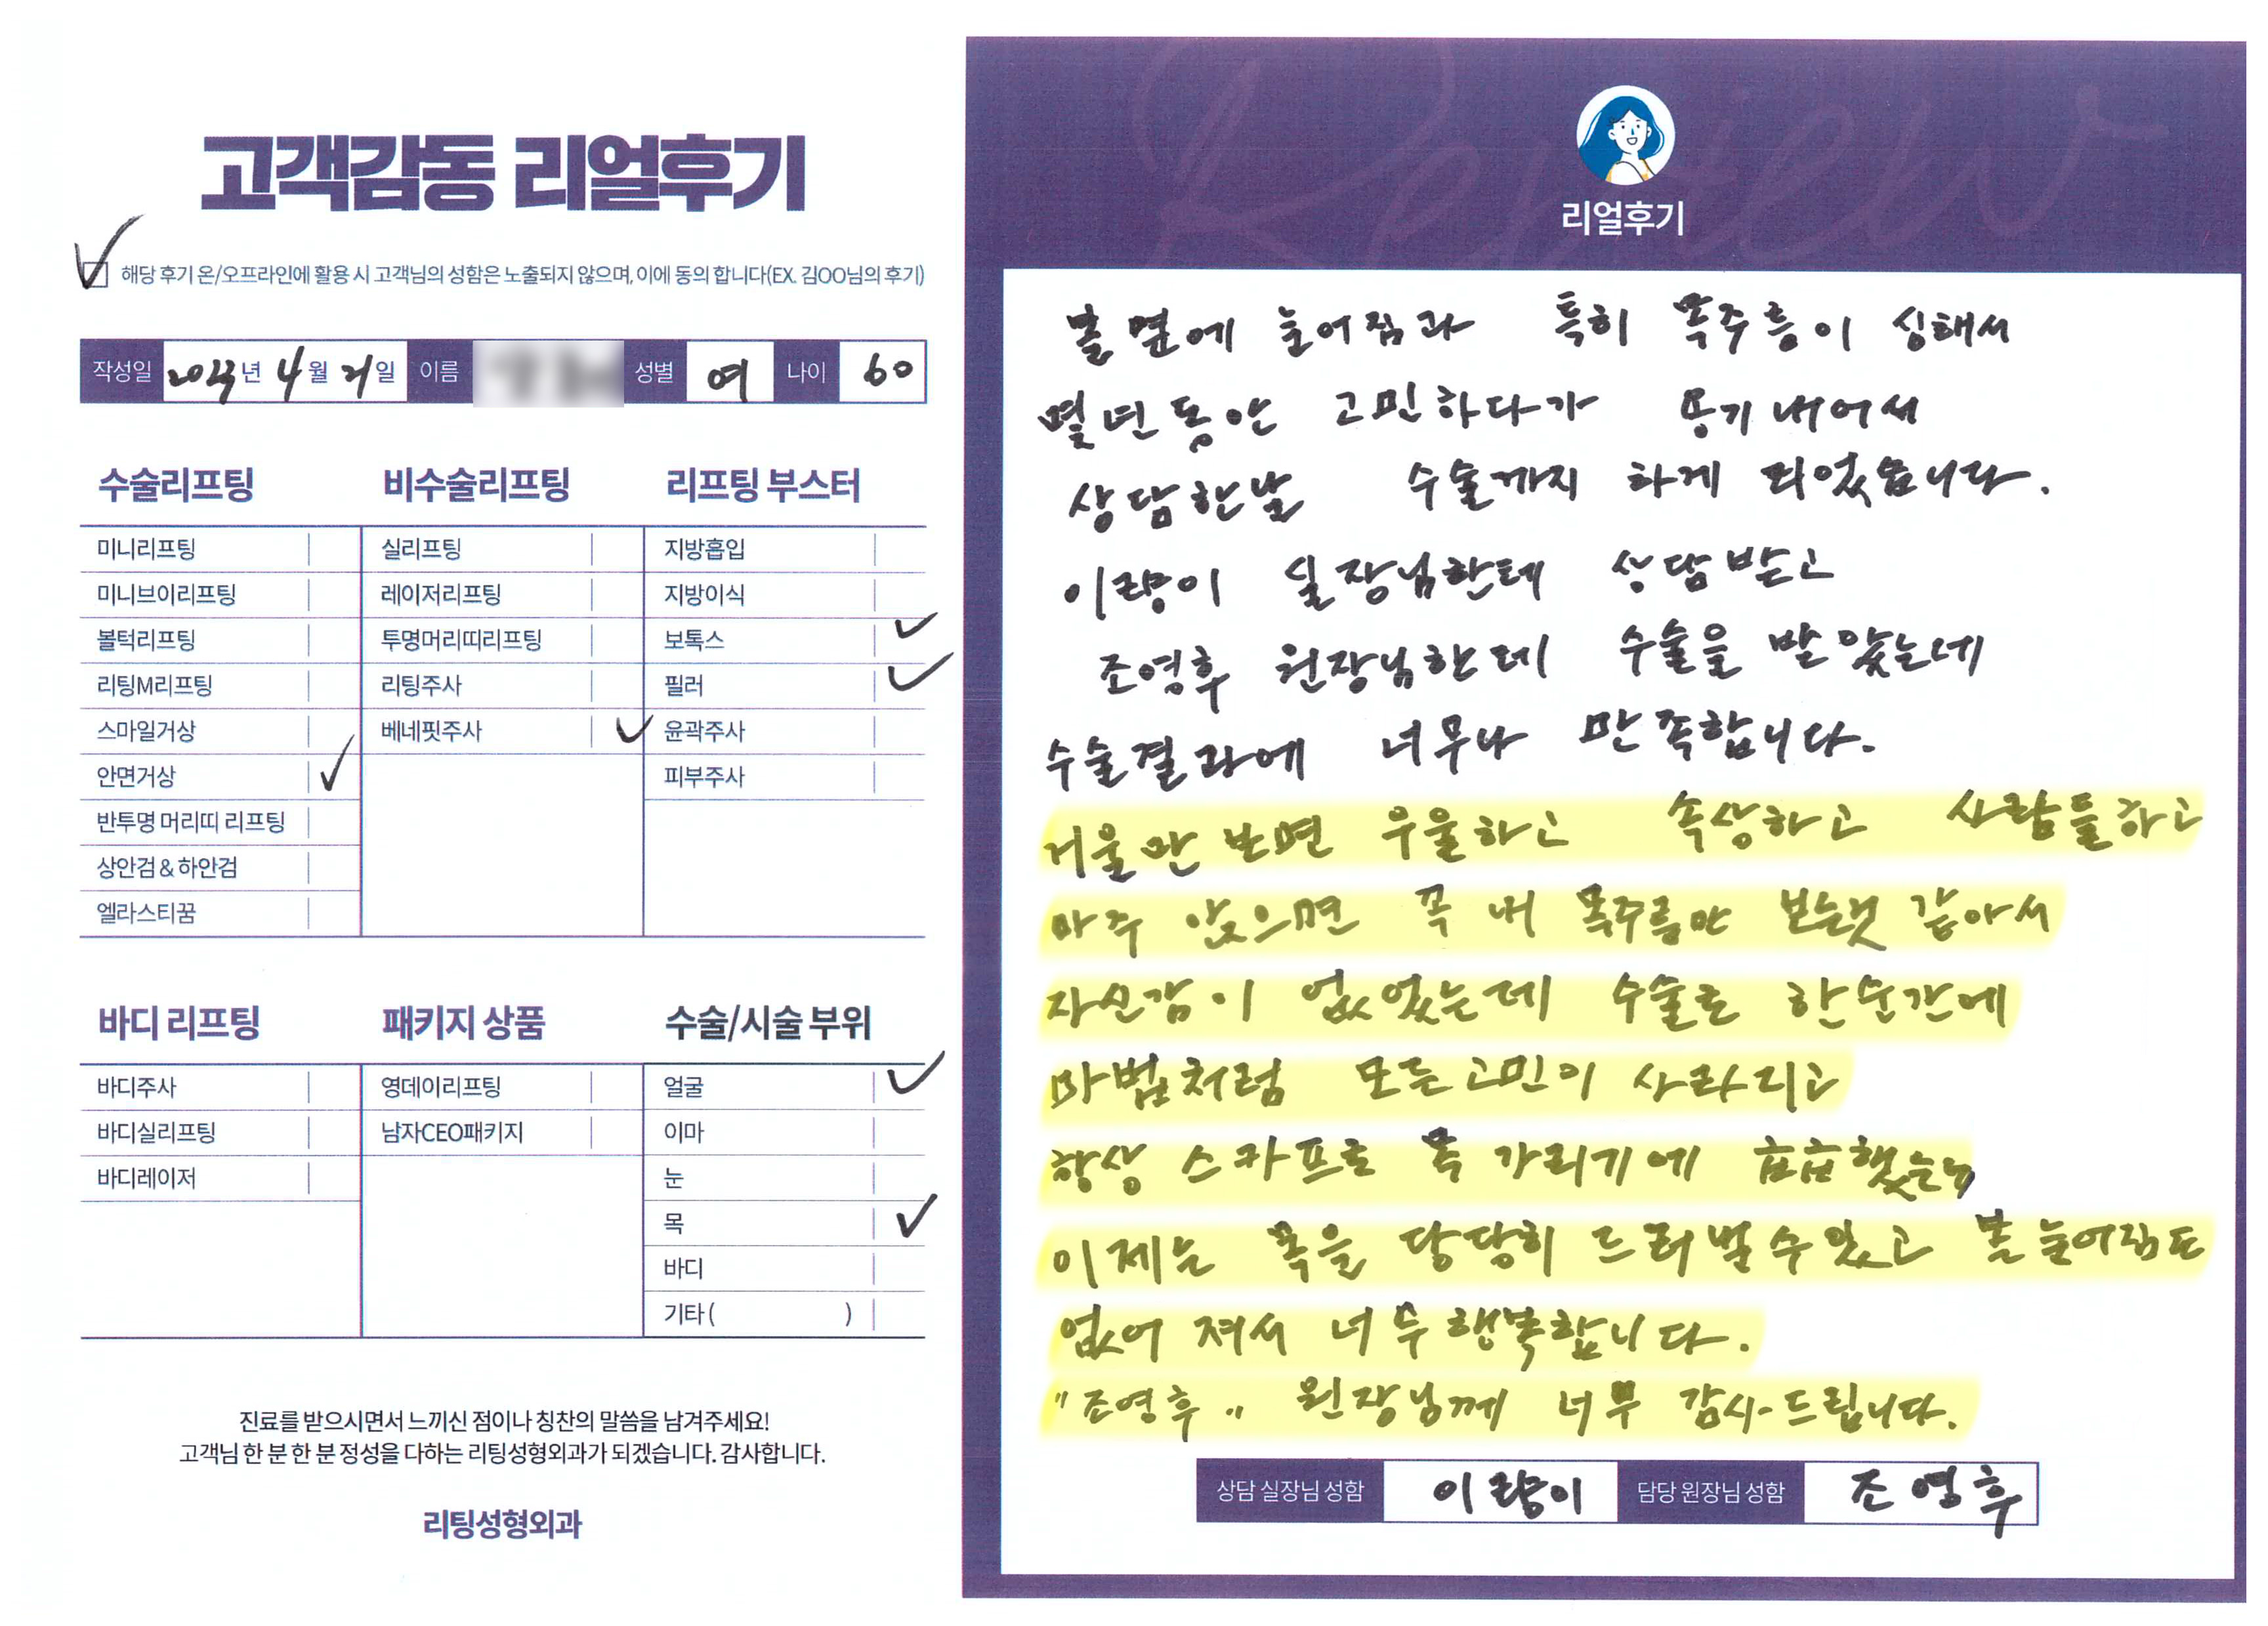 고객감동 리얼후기
해당 후기 온/오프라인에 활용 시 고객님의 성함은 노출되지 않으며, 이에 동의 합니다(EX. 김OO님의 후기)
작성일 2023년 4월 21일 이름 성별 여 나이 60
수술리프팅
미니리프팅
미니브이리프팅
볼턱리프팅
리팅M리프팅
스마일거상
안면거상
반투명 머리띠 리프팅
상안검 & 하안검
엘라스티꿈
비수술리프팅
실리프팅
레이저리프팅
투명머리띠리프팅
리팅주사
베네핏주사
리프팅 부스터
지방흡입
지방이식
보톡스
필러
윤곽주사
피부주사
바디 리프팅
바디주사
바디실리프팅
바디레이저
패키지 상품
영데이리프팅
남자CEO패키지
수술/시술 부위
얼굴
이마
눈
목
바디
기타 ( )
진료를 받으시면서 느끼신 점이나 칭찬의 말씀을 남겨주세요!
고객님 한 분 한 분 정성을 다하는 리팅성형외과가 되겠습니다. 감사합니다.
리팅성형외과
Review
리얼후기
볼 옆에 늘어짐과 특히 목주름이 심해서
몇년동안 고민하다가 용기내어서
상담한날 수술까지 하게 되었습니다.
이량이 실장님한테 상담받고
조영후 원장님한테 수술을 받았는데
수술결과에 너무나 만족합니다.
거울만 보면 우울하고 속상하고 사람들하고
마주 앉으면 꼭 내 목주름만 보는것 같아서
자신감이 없었는데 수술로 한순간에
마법처럼 모든고민이 사라지고
항상 스카프로 목 가리기에 급급했는데
이제는 목을 당당히 드러낼수있고 볼 늘어짐도
없어 져서 너무 행복합니다.
"조영후" 원장님께 너무 감사드립니다.
상담 실장님 성함 이량이 담당 원장님 성함 조영후